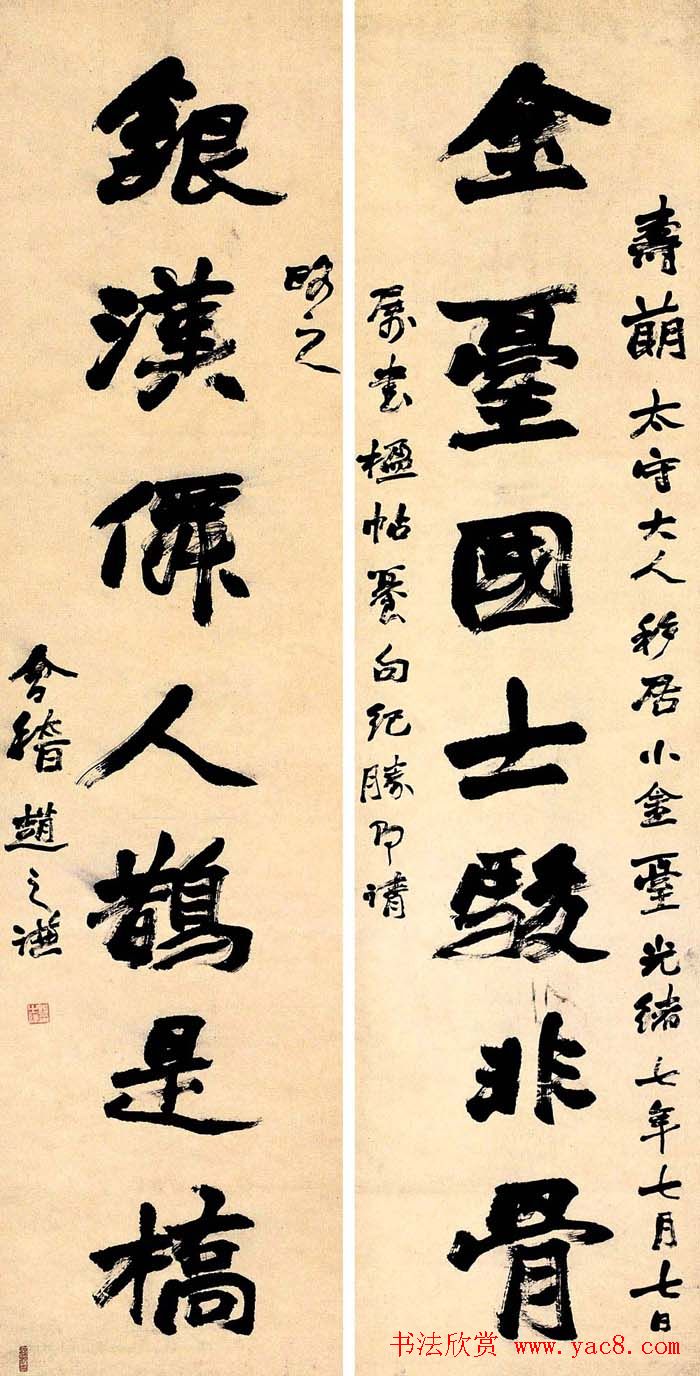 壽萠太守大人移居小金臺光緒七年七月七日
金臺國士駿非骨
屬書楹帖句紀勝即請
之
銀漢人鵲是槗
會稽趙之謙
书法欣赏 www.yac8.com